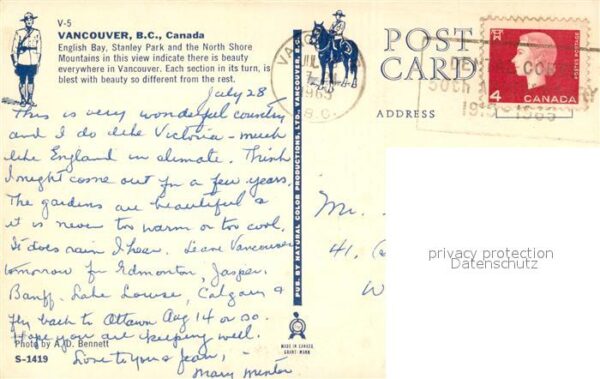 V-5
VANCOUVER, B.C., Canada
English Bay, Stanley Park and the North Shore
Mountains in this view indicate there is beauty
everywhere in Vancouver. Each section in its turn, is
blest with beauty so different from the rest.
July 28
This is very wonderful country
and I do like Victoria - much
like England in climate. Think
I might come out for a few years.
The gardens are beautiful &
it is never too warm or too cool.
It does rain I hear. Leave Vancouver
tomorrow for Edmonton, Jasper,
Banff, Lake Louise, Calgary &
fly back to Ottawa Aug 14 or so.
Hope you are keeping well.
Love to you
Mary
Photo by A. D. Bennett
S-1419
PUB. BY NATURAL COLOR PRODUCTIONS, LTD., VANCOUVER, B.C.
MADE IN CANADA
POST
CARD
ADDRESS
VANCOUVER
1965
B.C.
50th
1965
POSTES POSTAGE
4
CANADA
Mr.
41,
W
privacy protection
Datenschutz